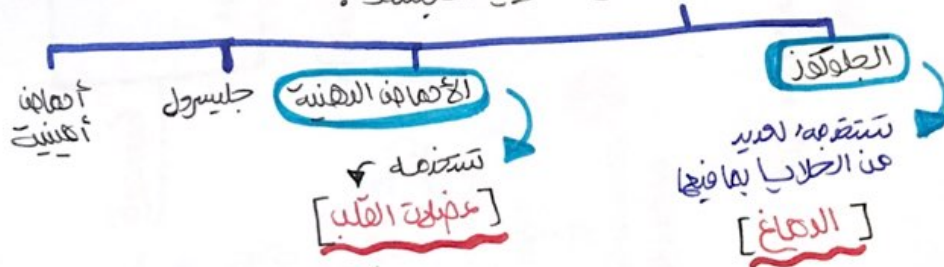 الجلوكوز
تستخدمه العديد
من الخلايا بما فيها
[الدماغ]
الأحماض الدهنية
تستخدمه
[عضلات القلب]
جليسرول
أحماض
أمينية